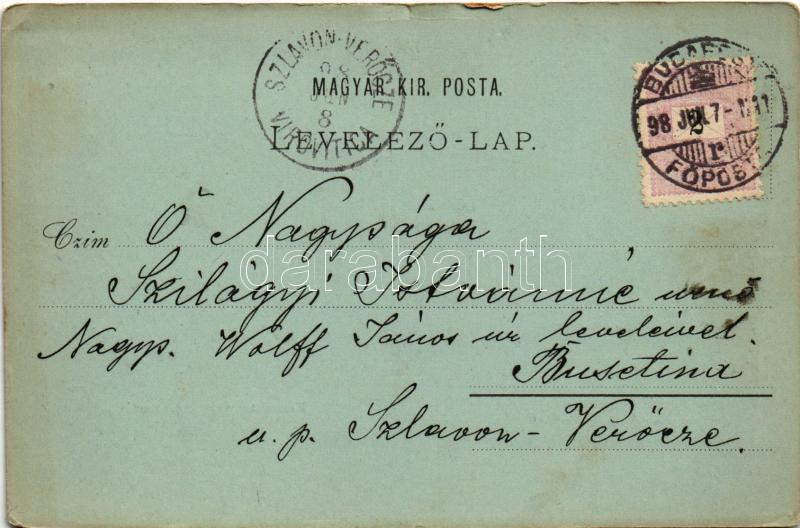 MAGYAR KIR. POSTA.
LEVELEZŐ-LAP.
SZLAVON-VERŐCZE
98
JUN
8
VIROVITICA
BUDAPEST
98 JUN 7
FŐPOSTA
2
r
Czim Ő Nagysága
Szilágyi Istvánné
Nagys. Wolff János úr leveleivel.
Busetina
u. p. Szlavon-Verőcze.
darabanth